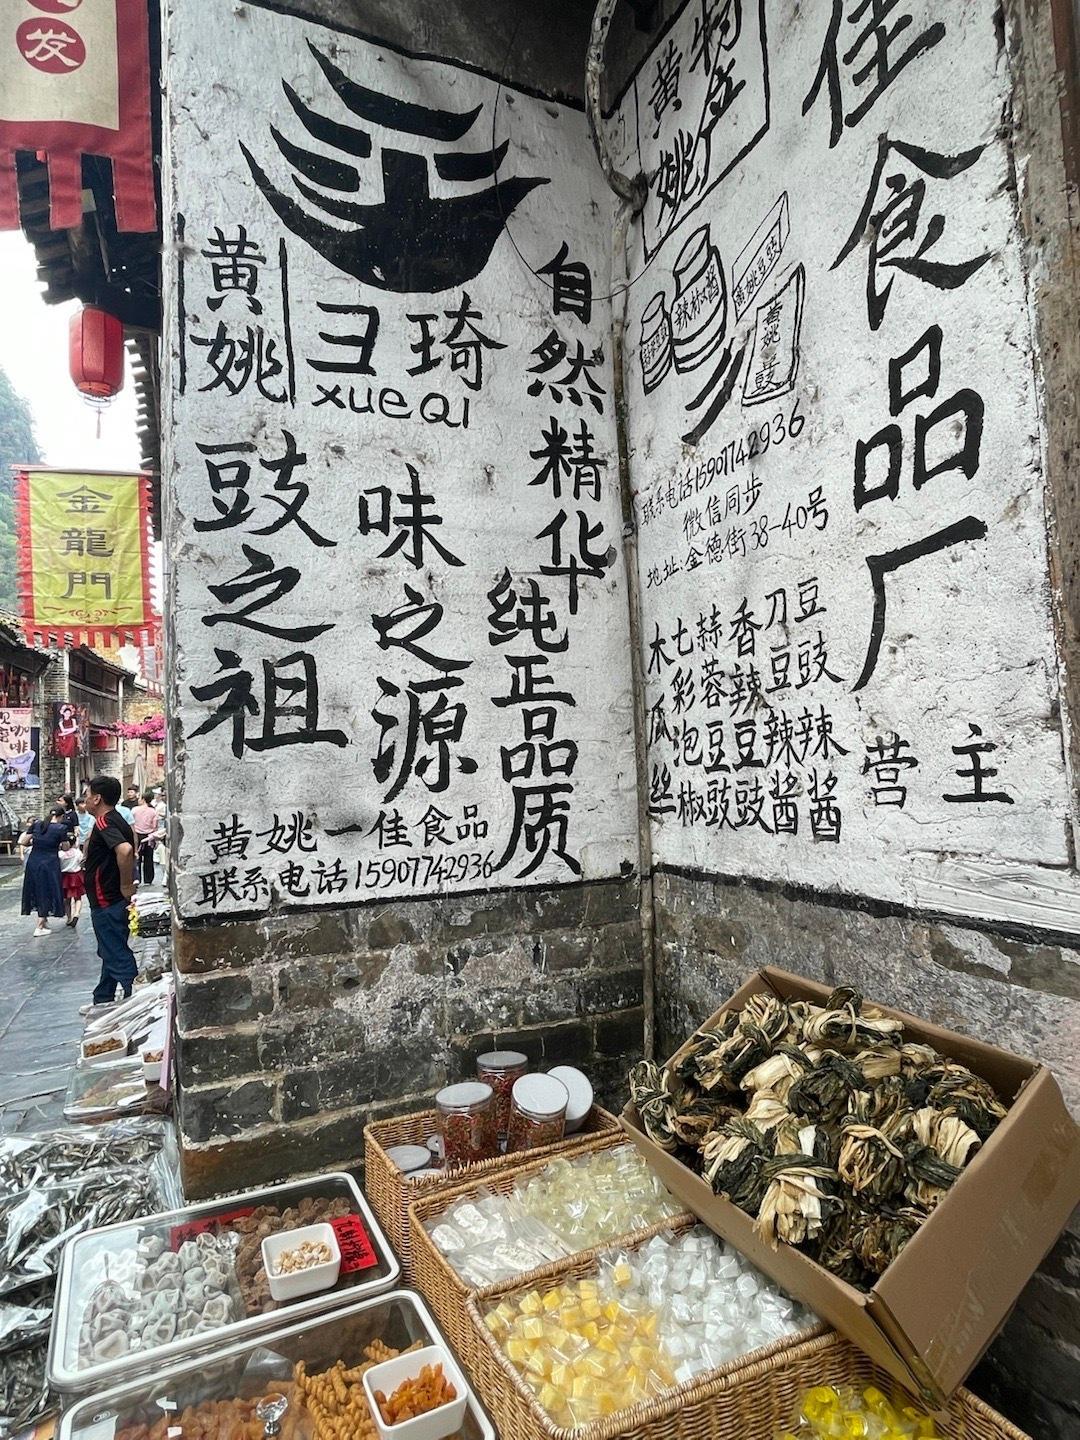 发
金龍門
黄姚
彐琦
xueQI
豉之祖
味之源
自然精华
纯正品质
黄姚一佳食品
联系电话15907742936
黄姚
物产
辣椒酱
黄姚豆豉
黄姚豉
联系电话15907742936
微信同步
地址:金德街38-40号
佳食品厂
主营
豆豉辣酱
刀豆辣酱
香辣豆豉
蒜蓉豆豉
七彩泡椒
木瓜丝
咖啡